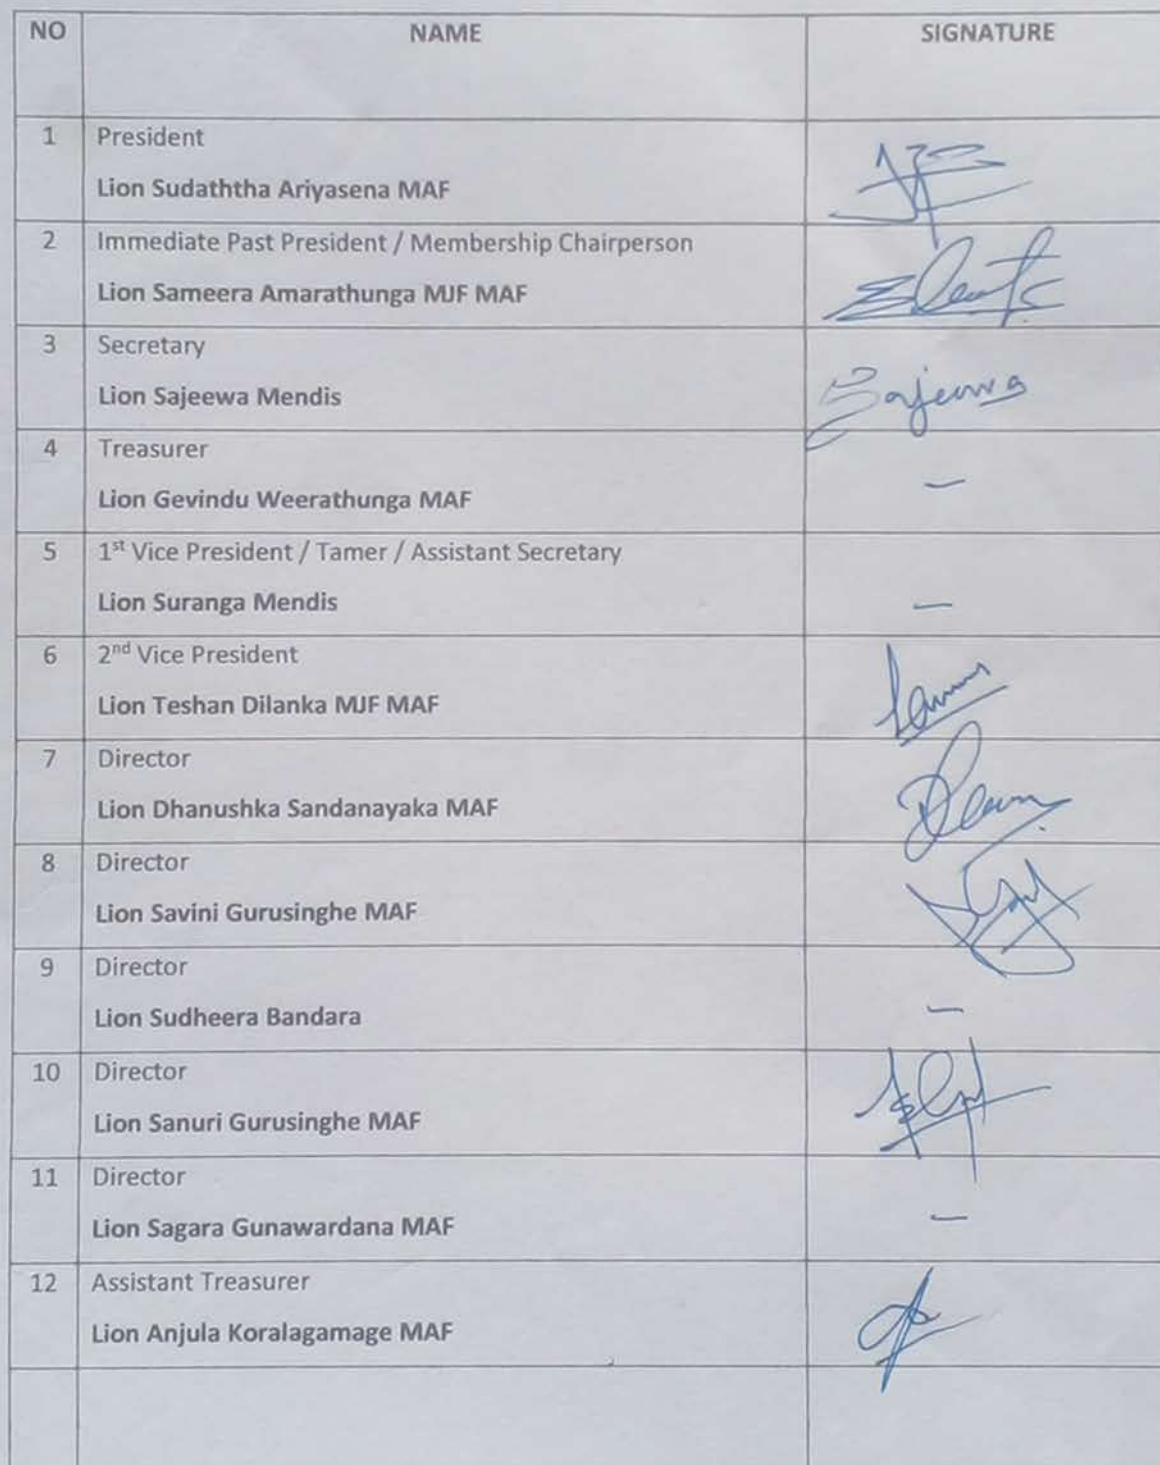 NO NAME SIGNATURE
1 President
Lion Sudaththa Ariyasena MAF
2 Immediate Past President / Membership Chairperson
Lion Sameera Amarathunga MJF MAF
3 Secretary
Lion Sajeewa Mendis Sajeewa
4 Treasurer
Lion Gevindu Weerathunga MAF —
5 1st Vice President / Tamer / Assistant Secretary
Lion Suranga Mendis —
6 2nd Vice President
Lion Teshan Dilanka MJF MAF
7 Director
Lion Dhanushka Sandanayaka MAF
8 Director
Lion Savini Gurusinghe MAF
9 Director
Lion Sudheera Bandara —
10 Director
Lion Sanuri Gurusinghe MAF
11 Director
Lion Sagara Gunawardana MAF —
12 Assistant Treasurer
Lion Anjula Koralagamage MAF